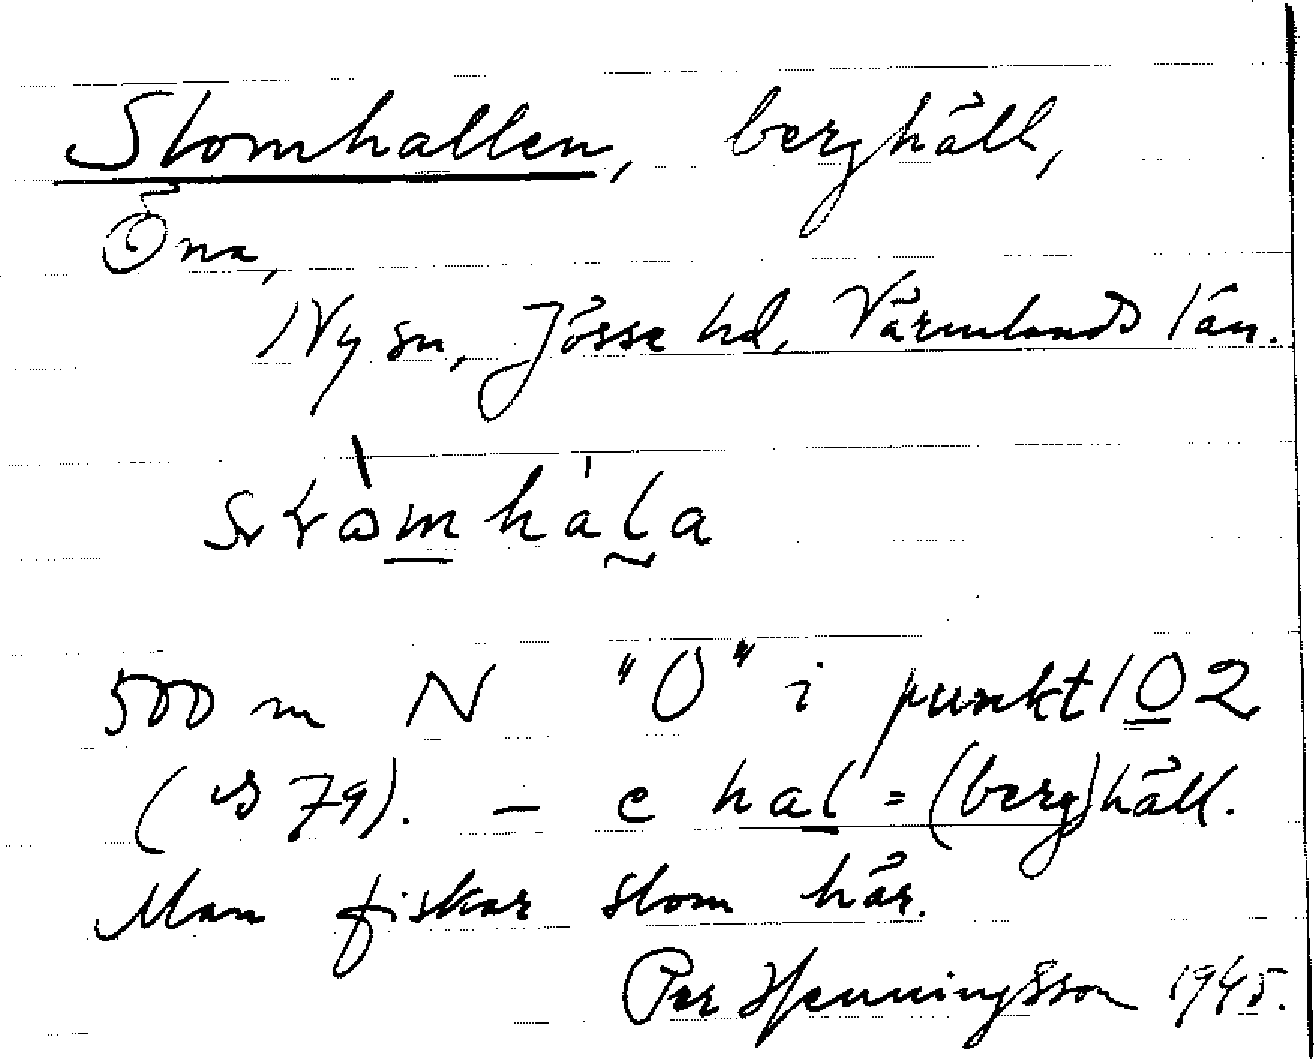 Slomhallen, berghäll,
Öna,
Ny sn, Jösse hd, Värmlands län.
500 m N "Ö" i punkt 102
(s 79). – e hal = (berg)häll.
Man fiskar slom här.
Per Henningsson 1945.